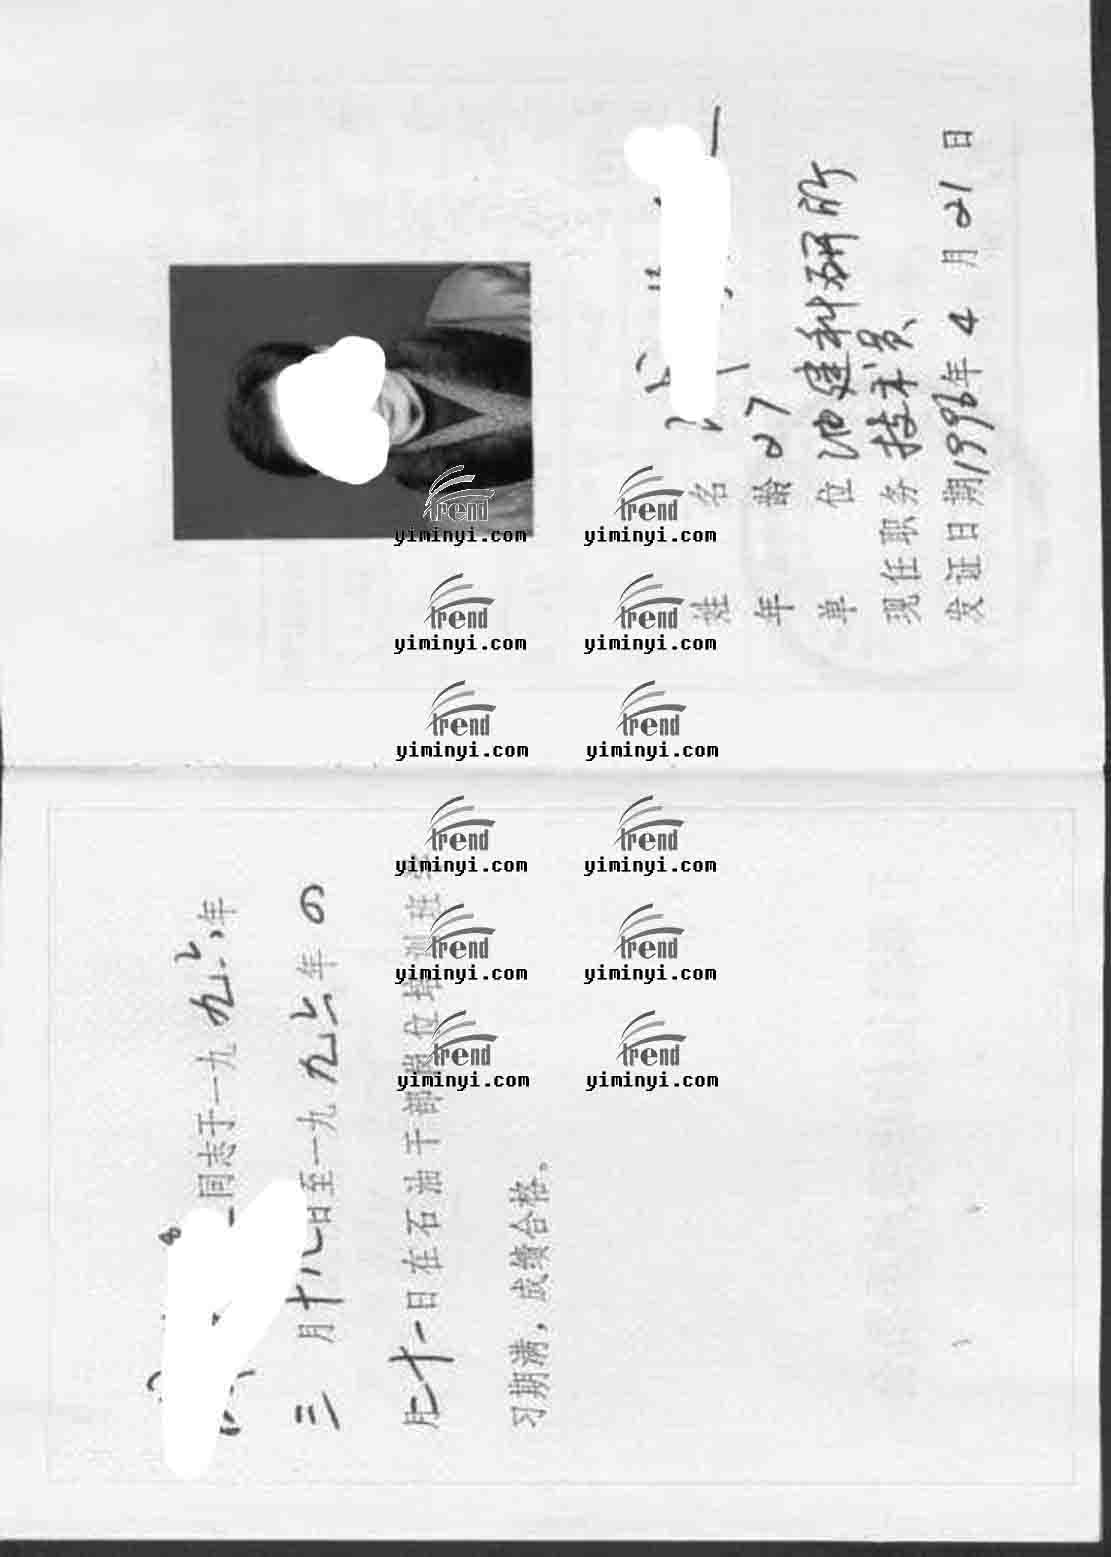 同志于一九九六年
三月十八日至一九九六年
月二十一日在石油干部岗位培训班学
习期满，成绩合格。
姓名
年龄 27
单位 油建科研所
现任职务 技术员
发证日期 1996年4月21日
trend
yiminyi.com
trend
yiminyi.com
trend
yiminyi.com
trend
yiminyi.com
trend
yiminyi.com
trend
yiminyi.com
trend
yiminyi.com
trend
yiminyi.com
trend
yiminyi.com
trend
yiminyi.com
trend
yiminyi.com
trend
yiminyi.com